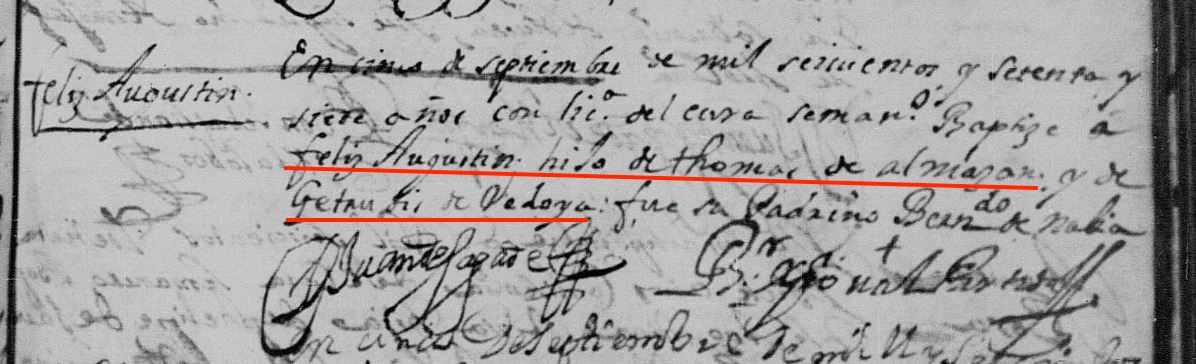 felix Augustin.
En cinco de septiembre de mil seiscientos y setenta y
siete años con lic.ª del cura seman.º Baptize a
felix Augustin. hijo de thomas de almazan. y de
Getrudis de Vedoya. fue su Padrino Bern.do de
Juan de
En cinco de septiembre de mil